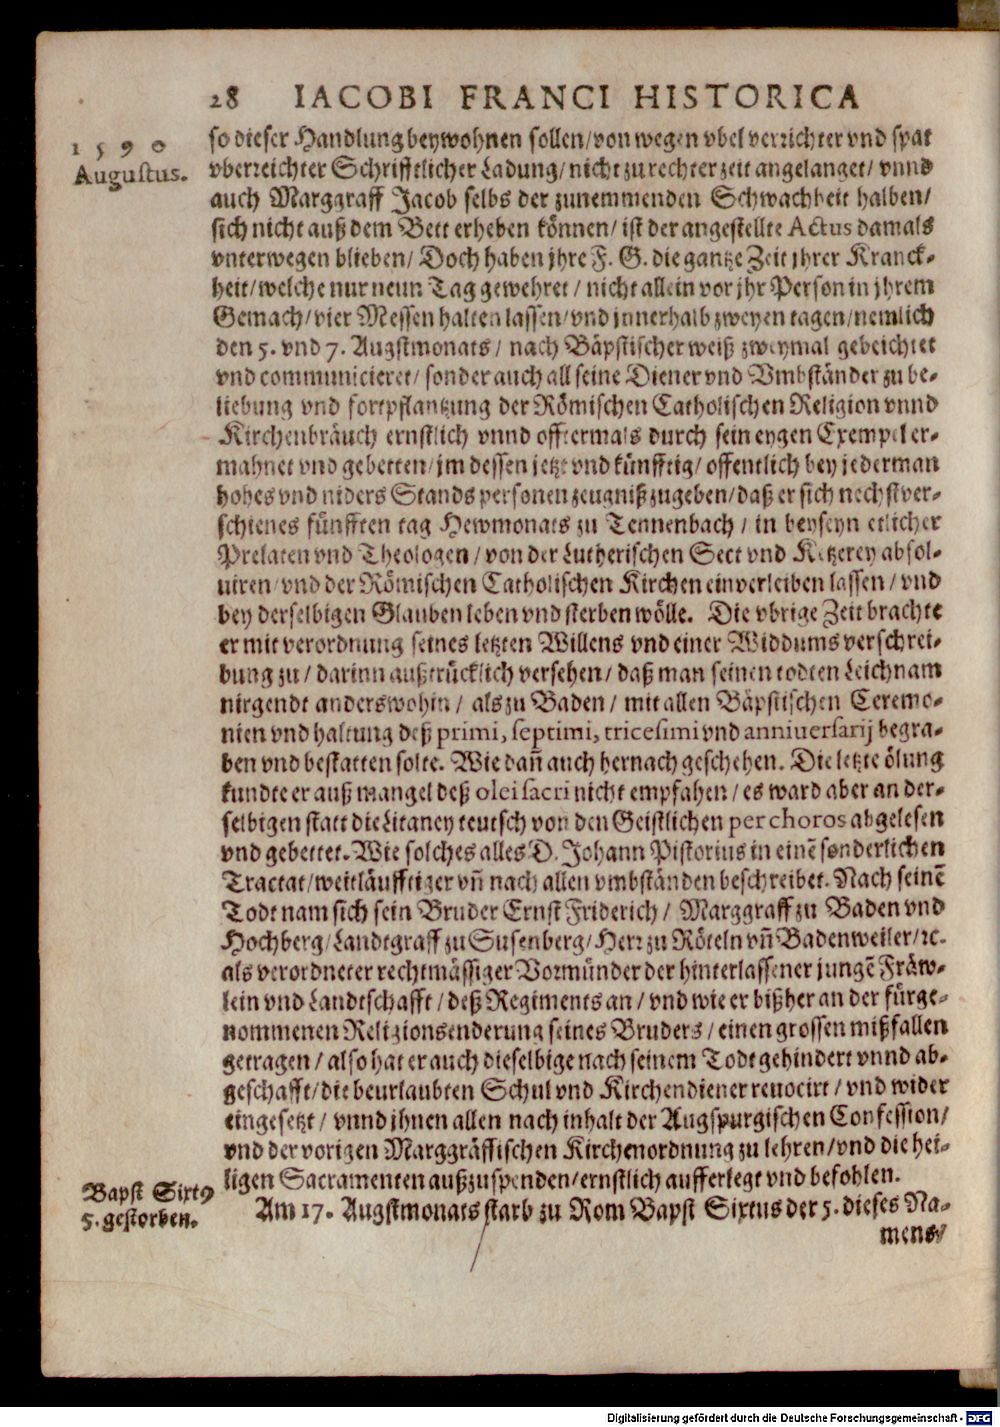 28 IACOBI FRANCI HISTORICA
1590
Augustus.
so dieser Handlung beywohnen sollen/ von wegen vbel verrichter vnd spat
vberreichter Schrifftlicher Ladung/ nicht zu rechter zeit angelanget/ vnnd
auch Marggraff Jacob selbs der zunemmenden Schwachheit halben/
sich nicht auß dem Bett erheben können/ ist der angestellte Actus damals
vnterwegen blieben/ Doch haben jhre F. G. die gantze Zeit jhrer Kranck-
heit/ welche nur neun Tag gewehret / nicht allein vor jhr Person in jhrem
Gemach/ vier Messen halten lassen/ vnd jnnerhalb zweyen tagen/ nemlich
den 5. vnd 7. Augstmonats/ nach Bäpstischer weiß zweymal gebeichtet
vnd communicieret/ sonder auch all seine Diener vnd Vmbständer zu be-
liebung vnd fortpflantzung der Römischen Catholischen Religion vnnd
Kirchenbräuch ernstlich vnnd offtermals durch sein eygen Exempel er-
mahnet vnd gebetten/ jm dessen jetzt vnd künfftig/ offentlich bey jederman
hohes vnd niders Stands personen zeugniß zugeben/ daß er sich nechstver-
schienes fünfften tag Hewmonats zu Tennenbach / in beyseyn etlicher
Prelaten vnd Theologen / von der Lutherischen Sect vnd Ketzerey absol-
uiren/ vnd der Römischen Catholischen Kirchen einverleiben lassen / vnd
bey derselbigen Glauben leben vnd sterben wölle. Die vbrige Zeit brachte
er mit verordnung seines letzten Willens vnd einer Widdums verschrei-
bung zu / darinn außtrücklich versehen / daß man seinen todten Leichnam
nirgendt anderswohin / als zu Baden / mit allen Bäpstischen Ceremo-
nien vnd haltung deß primi, septimi, tricesimi vnd anniuersarij begra-
ben vnd bestatten solte. Wie dañ auch hernach geschehen. Die letzte ölung
kundte er auß mangel deß olei sacri nicht empfahen / es ward aber an der-
selbigen statt die Litaney teutsch von den Geistlichen per choros abgelesen
vnd gebettet. Wie solches alles D. Johann Pistorius in einẽ sonderlichen
Tractat/ weitläufftiger vñ nach allen vmbständen beschreibet. Nach seinẽ
Todt nam sich sein Bruder Ernst Friderich / Marggraff zu Baden vnd
Hochberg/ Landtgraff zu Susenberg/ Herr zu Röteln vñ Badenweiler/ ꝛc.
als verordneter rechtmässiger Vormünder der hinterlassener jungẽ Fräw-
lein vnd Landtschafft / deß Regiments an / vnd wie er bißher an der fürge-
nommenen Religionsenderung seines Bruders / einen grossen mißfallen
getragen / also hat er auch dieselbige nach seinem Todt gehindert vnnd ab-
geschafft/ die beurlaubten Schul vnd Kirchendiener reuocirt / vnd wider
eingesetzt / vnnd jhnen allen nach inhalt der Augspurgischen Confession/
vnd der vorigen Marggräffischen Kirchenordnung zu lehren/ vnd die hei-
ligen Sacramenten außzuspenden/ ernstlich aufferlegt vnd befohlen.
Bapst Sixtꝰ
5. gestorben.
Am 17. Augstmonats starb zu Rom Bapst Sixtus der 5. dieses Na-
mens/
Digitalisierung gefördert durch die Deutsche Forschungsgemeinschaft - DFG